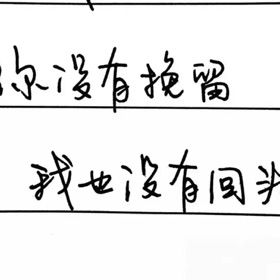 你没有挽留
我也没有回头